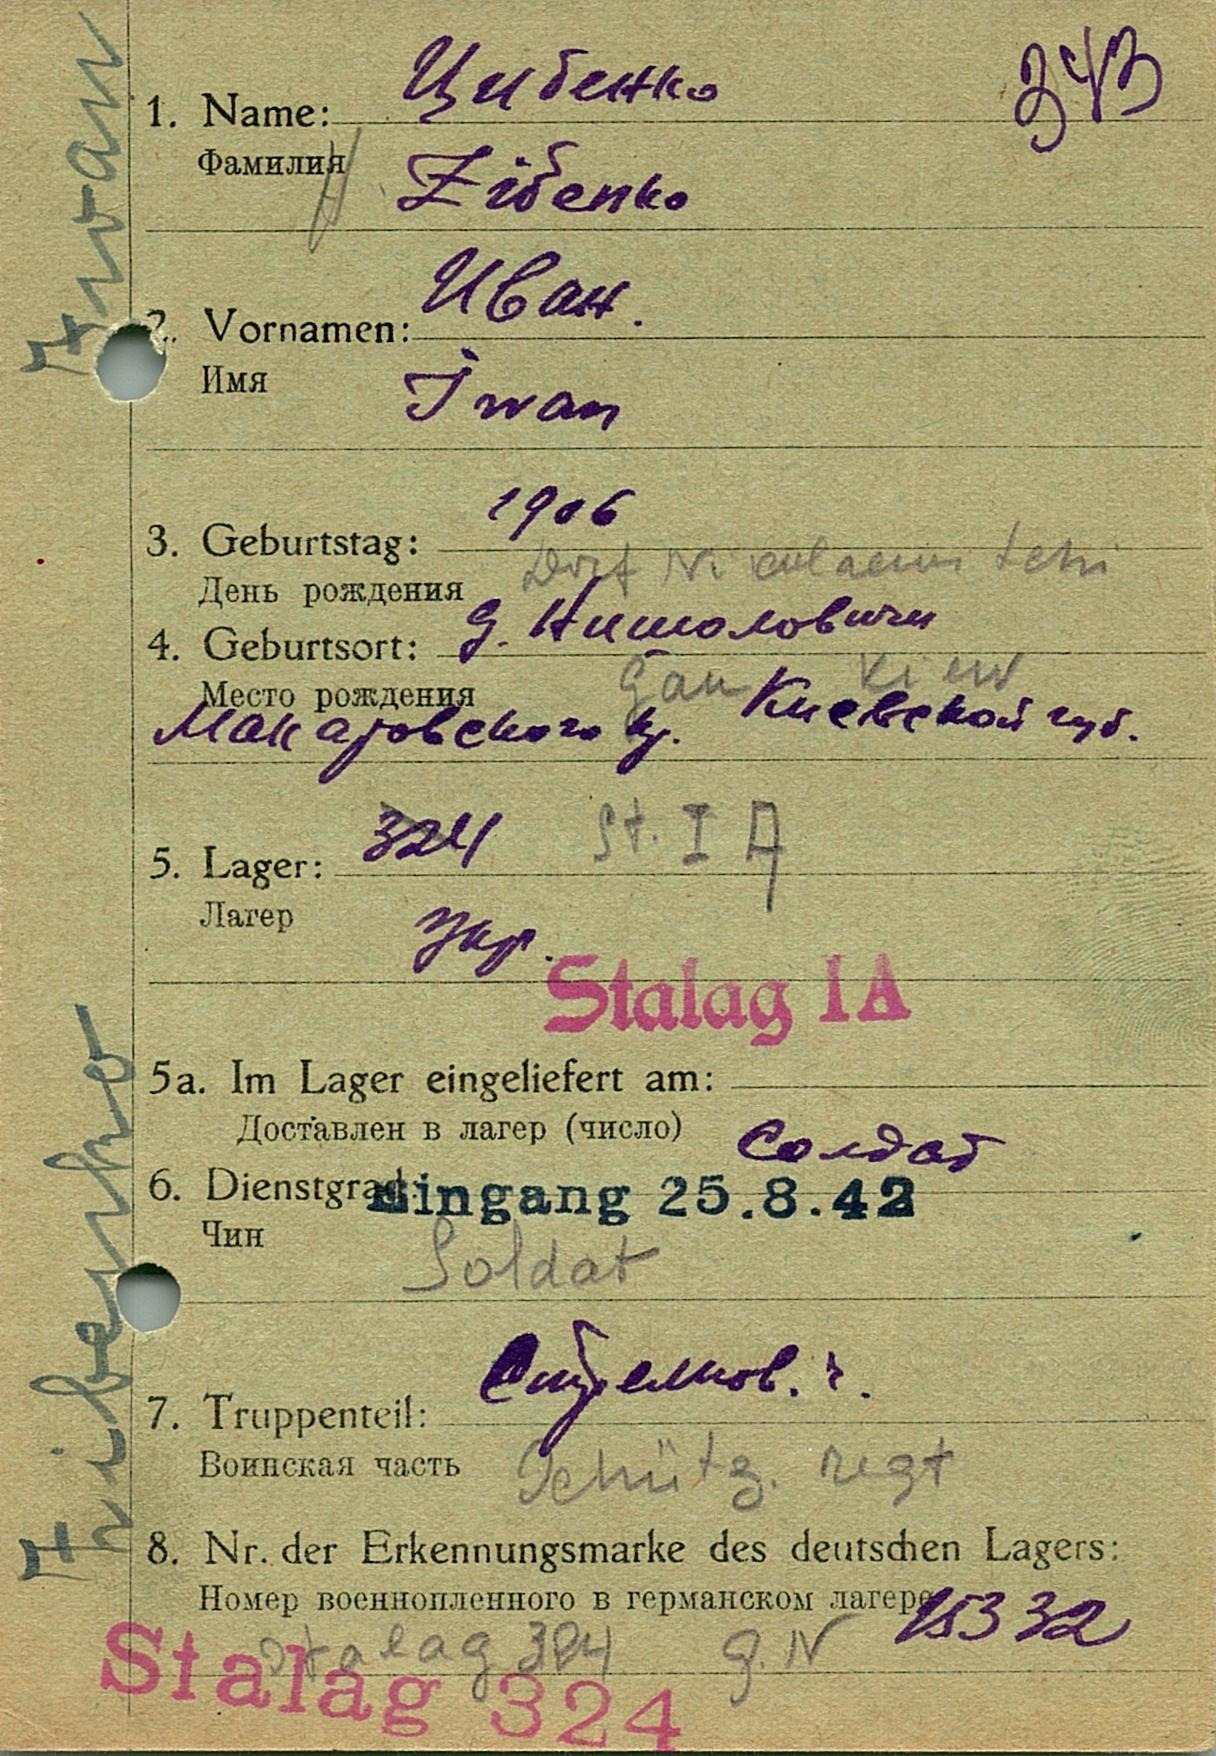 Цибенко
1. Name:
Фамилия
Zibenko
Иван.
2. Vornamen:
Имя
Iwan
1906
3. Geburtstag:
День рождения
Dorf
4. Geburtsort: д.
Место рождения
Gau Kiew
Макаровского р. Киевской губ.
324 St. I A
5. Lager:
Лагер
Укр.
Stalag IA
5a. Im Lager eingeliefert am:
Доставлен в лагер (число)
Солдат
6. Dienstgrad: Eingang 25.8.42
Чин
Soldat
Стрелков. ч.
7. Truppenteil:
Воинская часть
Schütz. regt
8. Nr. der Erkennungsmarke des deutschen Lagers:
Номер военнопленного в германском лагере 15332
Stalag 324
Stalag 324
Zibenko Iwan